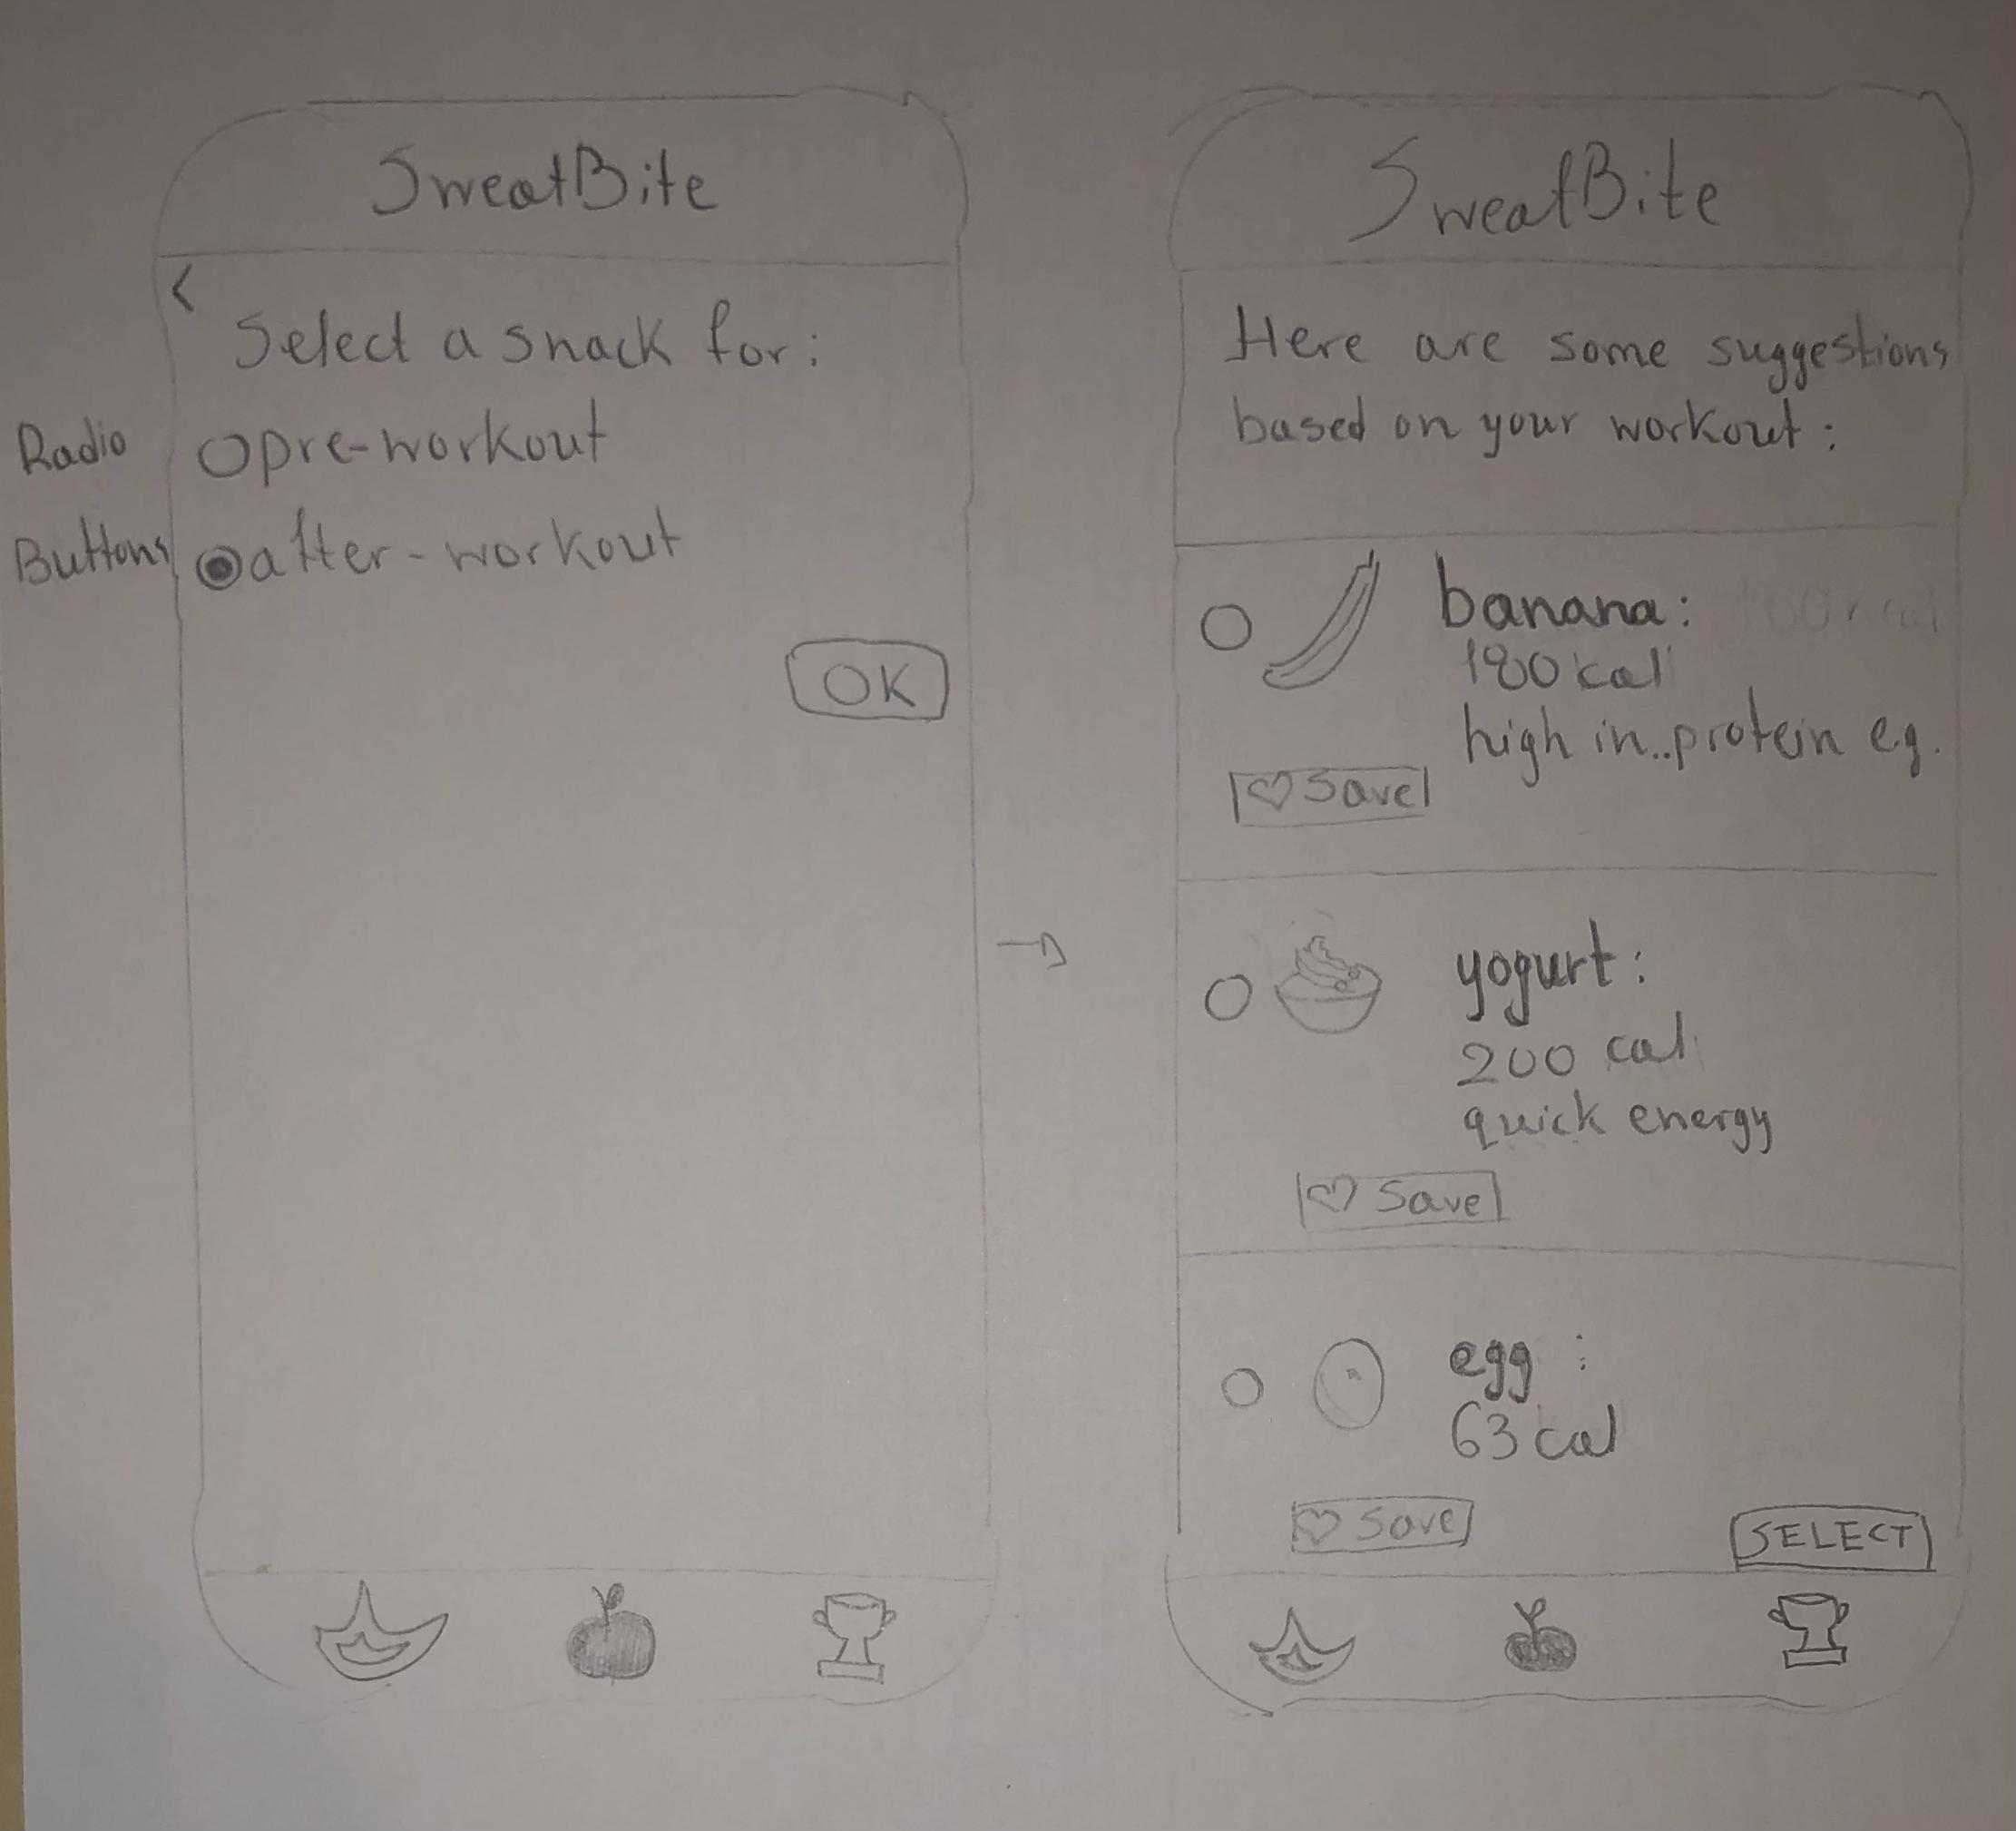 SweatBite
<
Select a snack for:
Radio
pre-workout
Buttons
after-workout
OK
SweatBite
Here are some suggestions
based on your workout:
banana:
180 cal
high in..protein eg.
Save
yogurt:
200 cal
quick energy
Save
egg:
63 cal
Save
SELECT